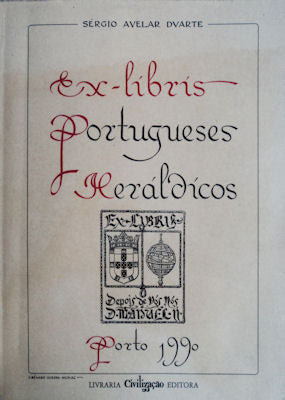 SÉRGIO AVELAR DVARTE
Ex-libris
Portugueses
Heráldicos
EX-LIBRIS
Depois de Vós Nós
D. MANUEL II
Porto 1990
LIVRARIA Civilização EDITORA